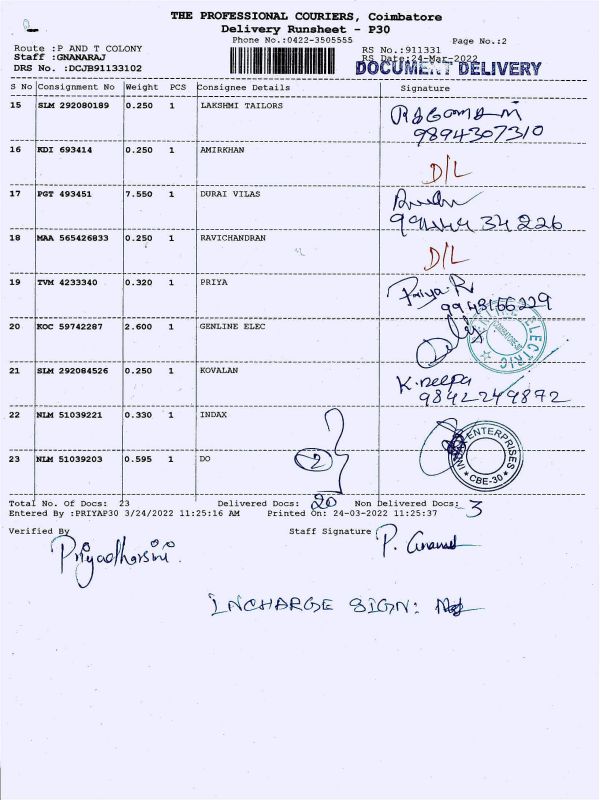 2
THE PROFESSIONAL COURIERS, Coimbatore
Delivery Runsheet - P30
Phone No.:0422-3505555
Page No.:2
Route :P AND T COLONY
RS No.:911331
Staff :GNANARAJ
RS Date:24-Mar-2022
DRS No. :DCJB91133102
DOCUMENT DELIVERY
S No Consignment No Weight PCS Consignee Details Signature
15 SLM 292080189 0.250 1 LAKSHMI TAILORS
9894307310
16 KDI 693414 0.250 1 AMIRKHAN
D/L
17 PGT 493451 7.550 1 DURAI VILAS
34226
18 MAA 565426833 0.250 1 RAVICHANDRAN
D/L
19 TVM 4233340 0.320 1 PRIYA Priya.R
9943166229
20 KOC 59742287 2.600 1 GENLINE ELEC
ELECTRIC
21 SLM 292084526 0.250 1 KOVALAN K.Deepa
9842249872
22 NLM 51039221 0.330 1 INDAX
ENTERPRISES
CBE-30
23 NLM 51039203 0.595 1 DO 2
Total No. Of Docs: 23 Delivered Docs: 20 Non Delivered Docs: 3
Entered By :PRIYAP30 3/24/2022 11:25:16 AM Printed On: 24-03-2022 11:25:37
Verified By Staff Signature
Priyadharsini.
INCHARGE SIGN: